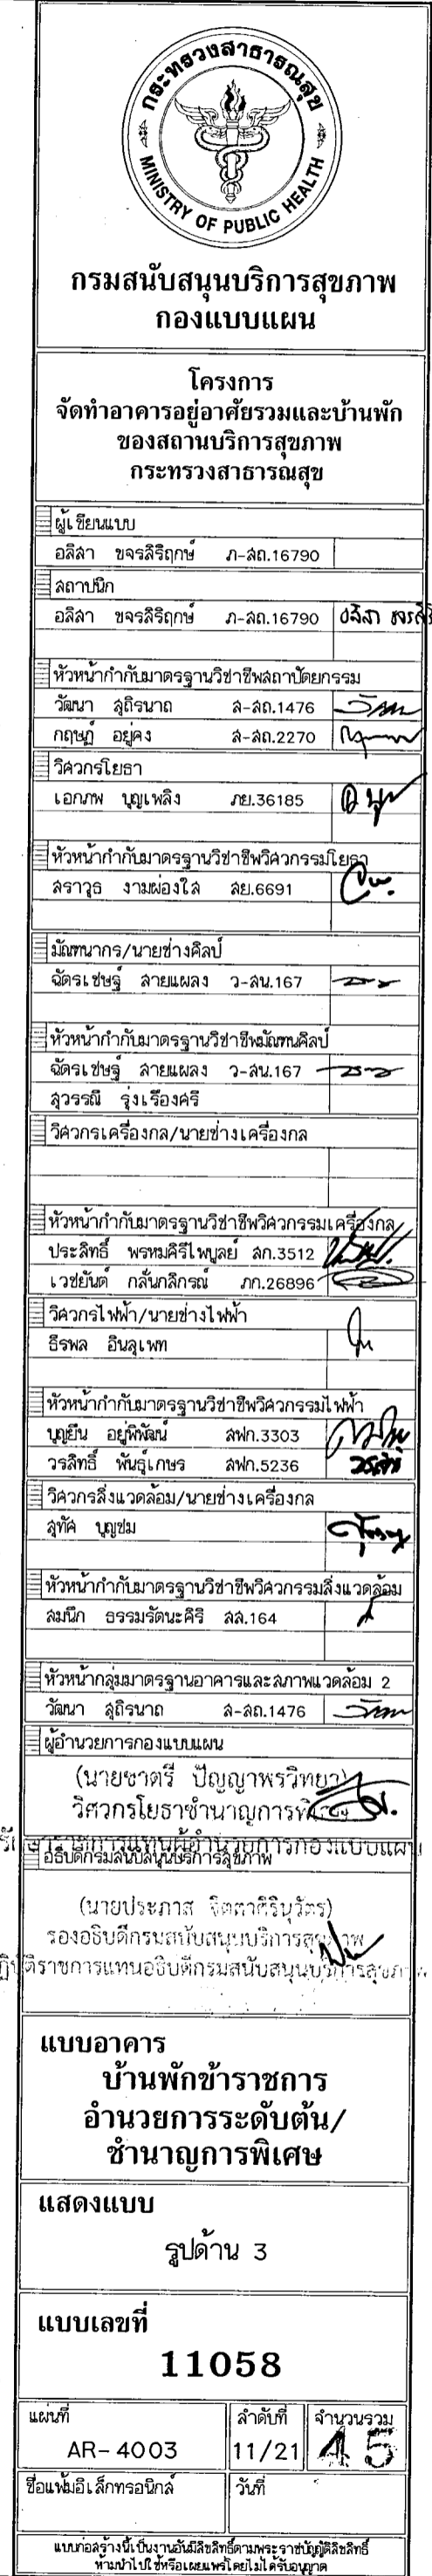 กระทรวงสาธารณสุข
MINISTRY OF PUBLIC HEALTH
กรมสนับสนุนบริการสุขภาพ
กองแบบแผน
โครงการ
จัดทำอาคารอยู่อาศัยรวมและบ้านพัก
ของสถานบริการสุขภาพ
กระทรวงสาธารณสุข
ผู้เขียนแบบ
อลิสา ขจรสิริฤกษ์ ภ-สถ.16790
สถาปนิก
อลิสา ขจรสิริฤกษ์ ภ-สถ.16790
หัวหน้ากำกับมาตรฐานวิชาชีพสถาปัตยกรรม
วัฒนา สุถิรนาถ ส-สถ.1476
กฤษฎ์ อยู่คง ส-สถ.2270
วิศวกรโยธา
เอกภพ บุญเพลิง ภย.36185
หัวหน้ากำกับมาตรฐานวิชาชีพวิศวกรรมโยธา
สราวุธ งามผ่องใส สย.6691
มัณฑนากร/นายช่างศิลป์
ฉัตรเชษฐ์ สายแผลง ว-สน.167
หัวหน้ากำกับมาตรฐานวิชาชีพมัณฑนศิลป์
ฉัตรเชษฐ์ สายแผลง ว-สน.167
สุวรรณี รุ่งเรืองศรี
วิศวกรเครื่องกล/นายช่างเครื่องกล
หัวหน้ากำกับมาตรฐานวิชาชีพวิศวกรรมเครื่องกล
ประสิทธิ์ พรหมคิรีไพบูลย์ สก.3512
เวชยันต์ กลั่นกลิกรณ์ ภก.26896
วิศวกรไฟฟ้า/นายช่างไฟฟ้า
ธีรพล อินลุเพท
หัวหน้ากำกับมาตรฐานวิชาชีพวิศวกรรมไฟฟ้า
บุญยืน อยู่พิพัฒน์ สฟก.3303
วรสิทธิ์ พันธุ์เกษร สฟก.5236
วิศวกรสิ่งแวดล้อม/นายช่างเครื่องกล
สุทัศ บุญชม
หัวหน้ากำกับมาตรฐานวิชาชีพวิศวกรรมสิ่งแวดล้อม
สมนึก ธรรมรัตนะคิรี สส.164
หัวหน้ากลุ่มมาตรฐานอาคารและสภาพแวดล้อม 2
วัฒนา สุถิรนาถ ส-สถ.1476
ผู้อำนวยการกองแบบแผน
(นายชาตรี ปัญญาพรวิทยา)
วิศวกรโยธาชำนาญการพิเศษ
รักษาราชการแทนผู้อำนวยการกองแบบแผน
อธิบดีกรมสนับสนุนบริการสุขภาพ
(นายประภาส จิตตาศิรินุวัตร)
รองอธิบดีกรมสนับสนุนบริการสุขภาพ
ปฏิบัติราชการแทนอธิบดีกรมสนับสนุนบริการสุขภาพ
แบบอาคาร
บ้านพักข้าราชการ
อำนวยการระดับต้น/
ชำนาญการพิเศษ
แสดงแบบ
รูปด้าน 3
แบบเลขที่
11058
แผ่นที่ ลำดับที่ จำนวนรวม
AR-4003 11/21 45
ชื่อแฟ้มอิเล็กทรอนิกส์ วันที่
แบบก่อสร้างนี้เป็นงานอันมีลิขสิทธิ์ตามพระราชบัญญัติลิขสิทธิ์
ห้ามนำไปใช้หรือเผยแพร่โดยไม่ได้รับอนุญาต